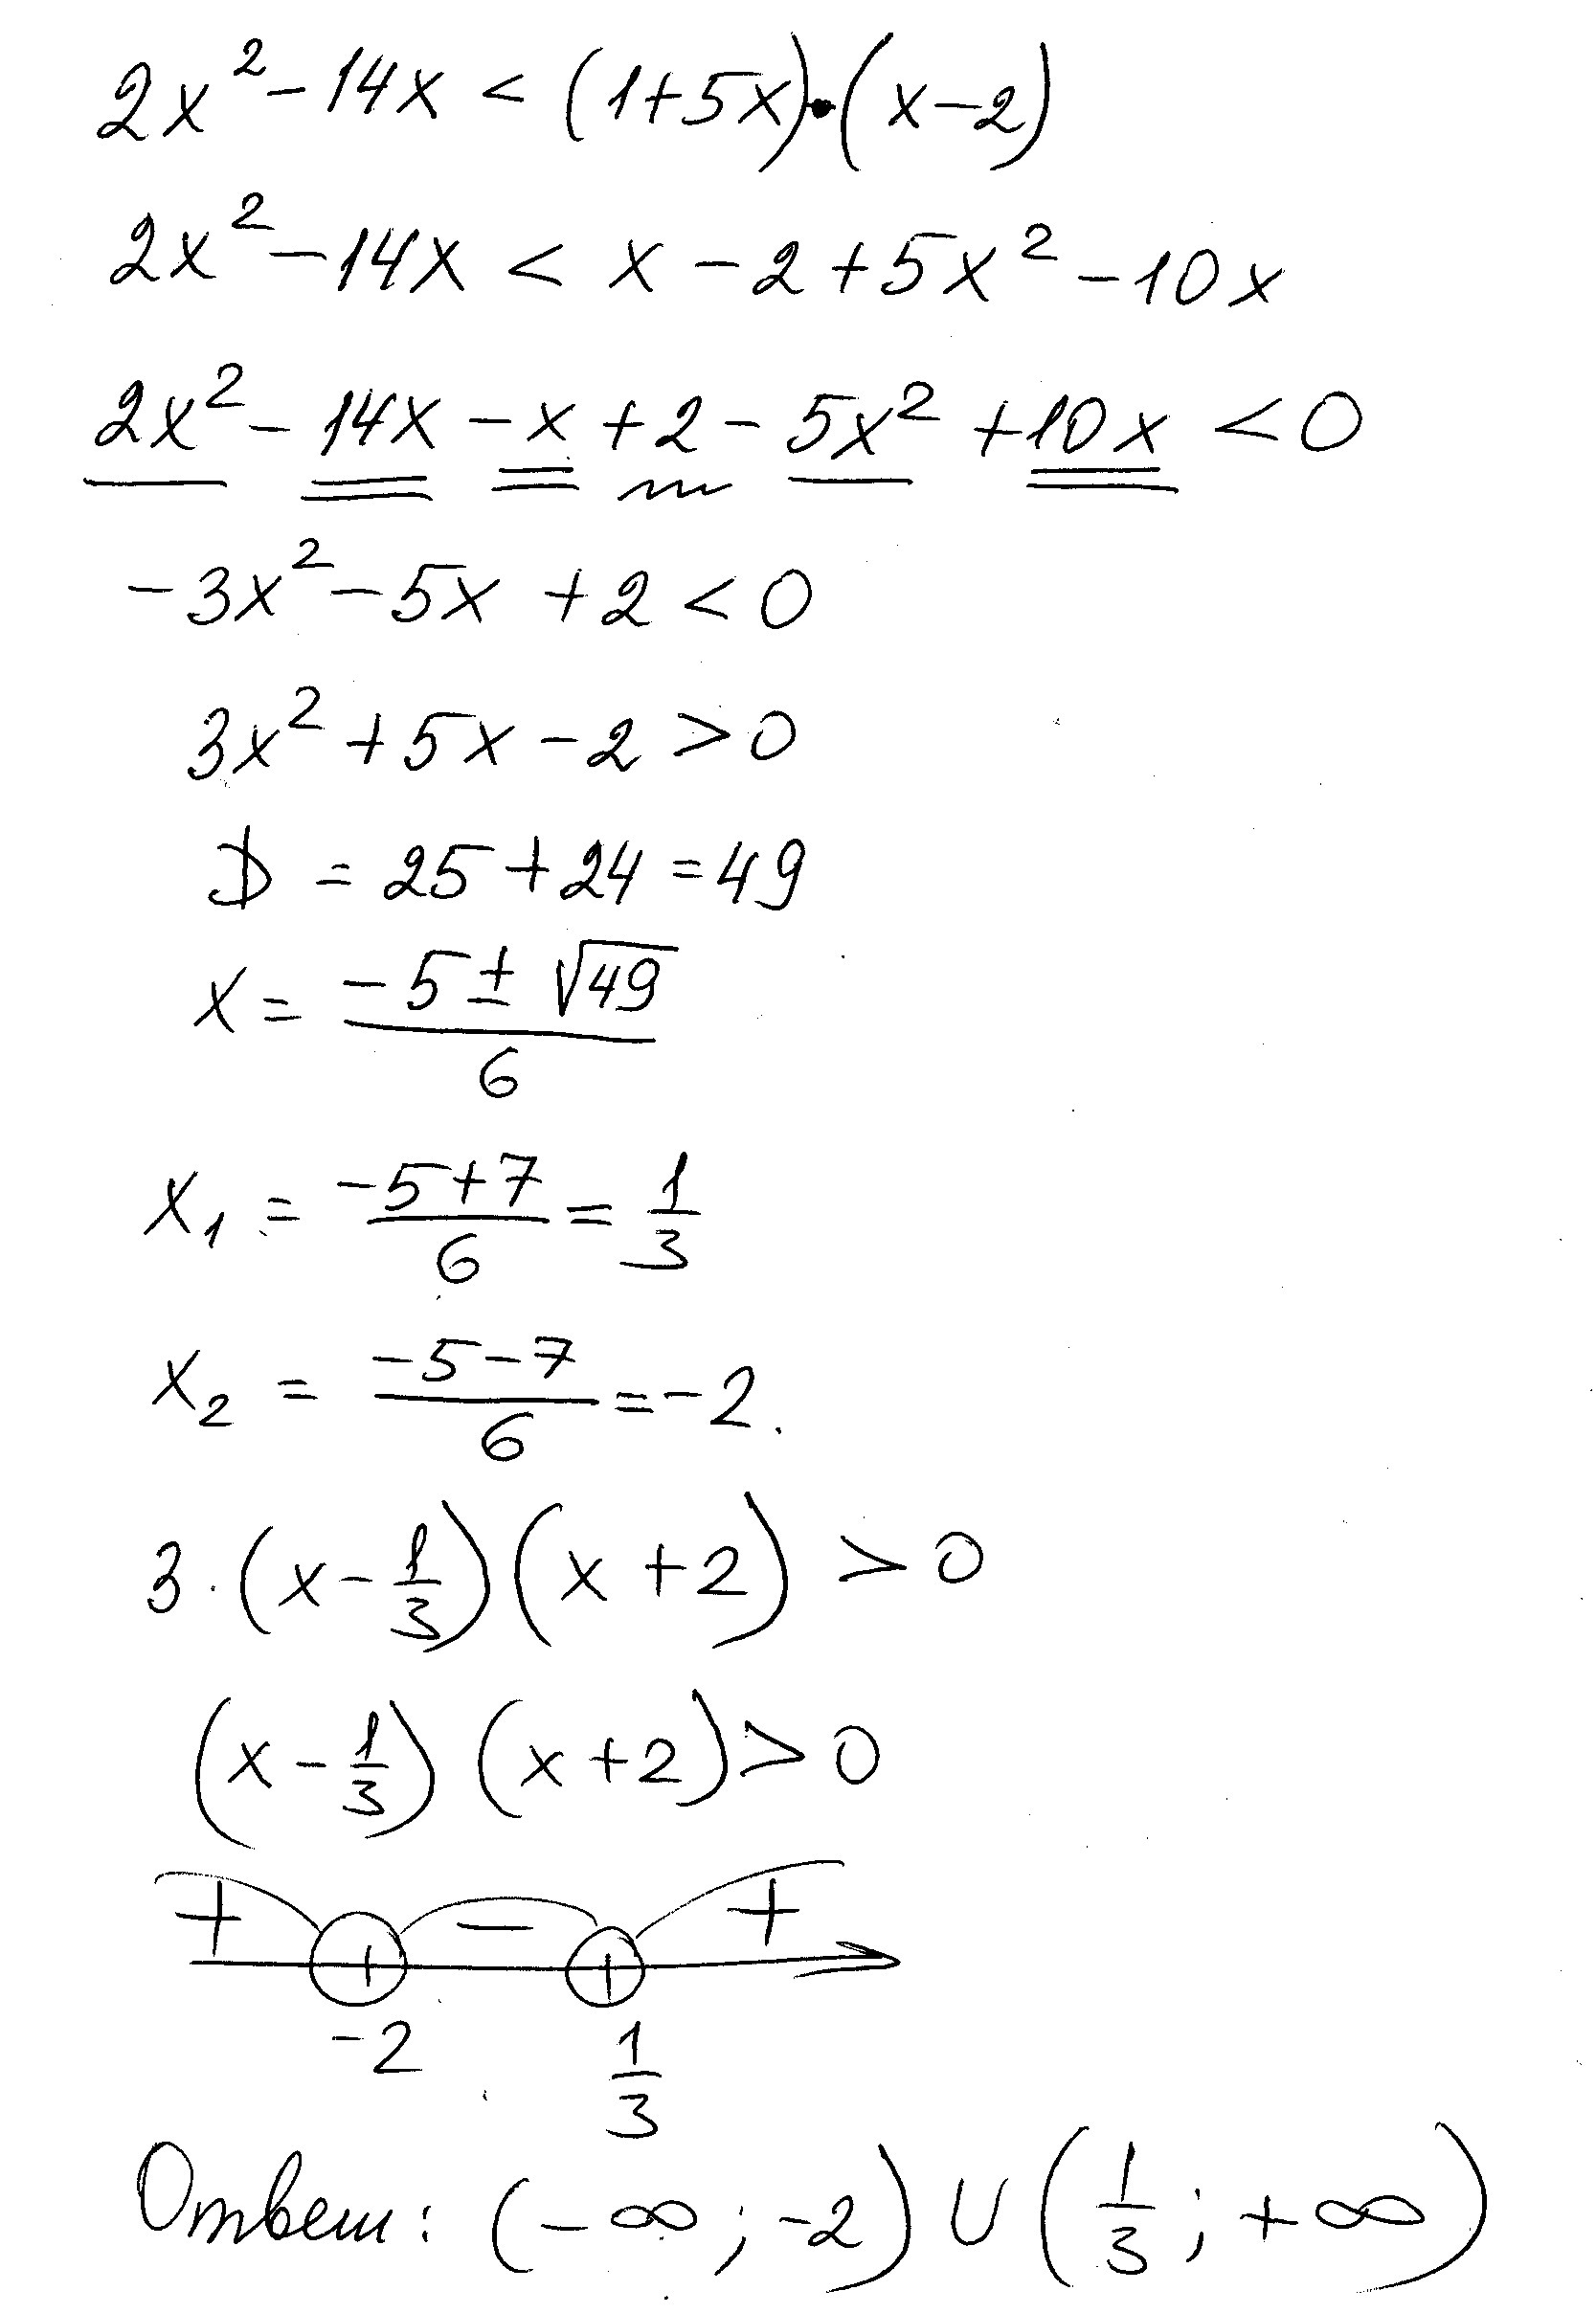 2x² - 14x < (1+5x)•(x-2)
2x² - 14x < x - 2 + 5x² - 10x
2x² - 14x - x + 2 - 5x² + 10x < 0
-3x² - 5x + 2 < 0
3x² + 5x - 2 > 0
D = 25 + 24 = 49
x = (-5 ± √49)/6
x₁ = (-5+7)/6 = 1/3
x₂ = (-5-7)/6 = -2.
3·(x - 1/3)(x + 2) > 0
(x - 1/3)(x + 2) > 0
+ - +
-2 1/3
Ответ: (-∞; -2) ∪ (1/3; +∞)